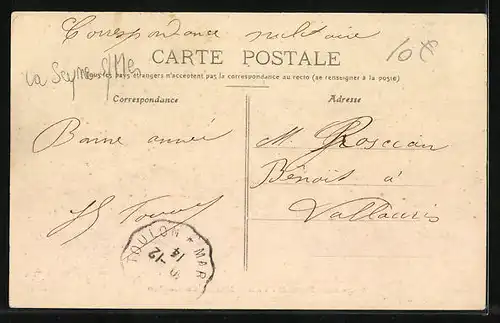 Correspondance militaire
CARTE POSTALE
10€
La Seyne s/Mer
Tous les pays étrangers n'acceptent pas la correspondance au recto (se renseigner à la poste)
Correspondance
Adresse
Bonne année
M. Roscian
Bénoit à
Vallauris
TOULON - MAR
14 -12